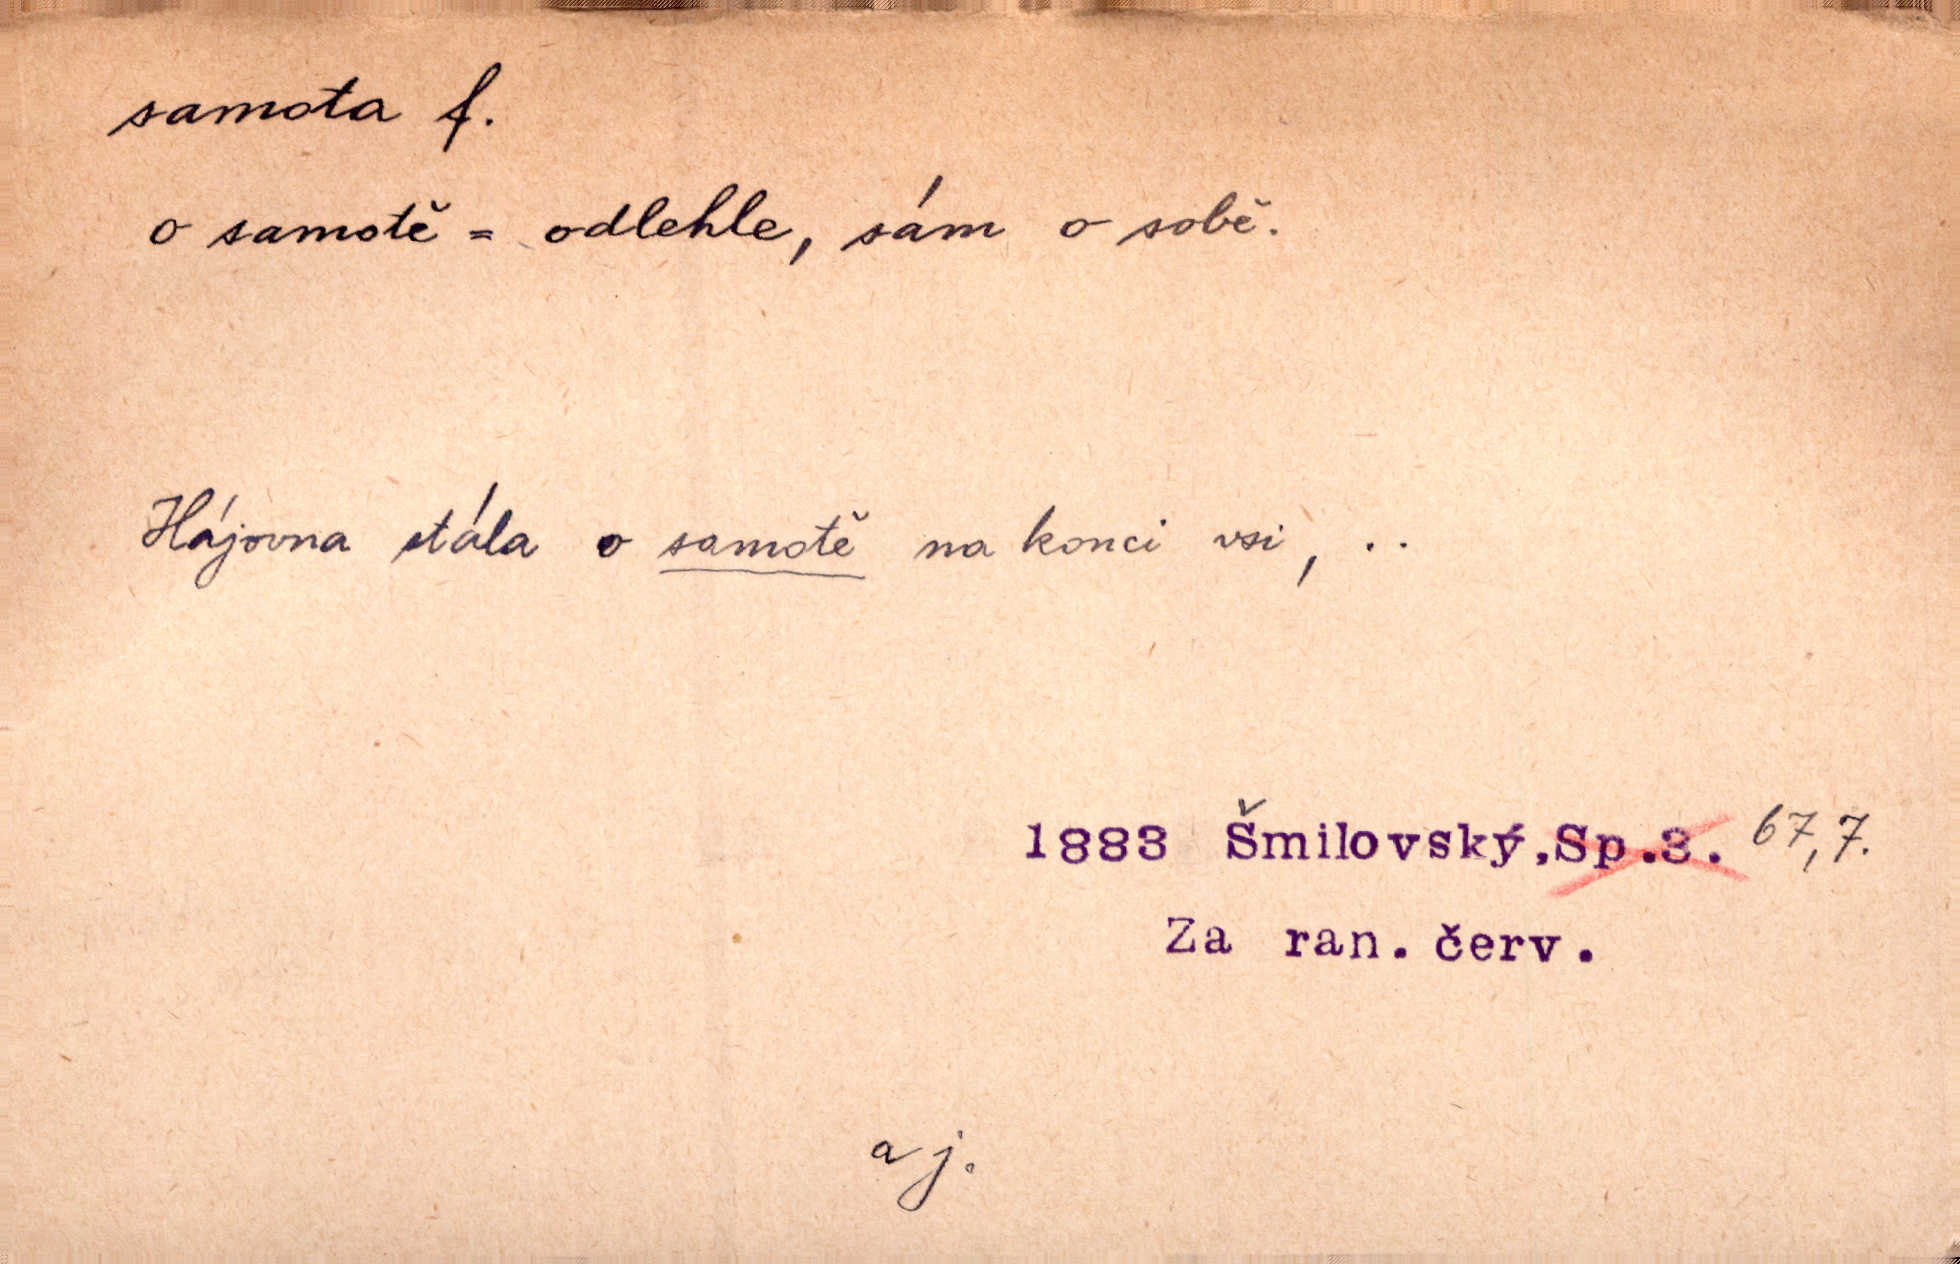 samota f.
o samotě = odlehle, sám o sobě.
Hájovna stála o samotě na konci vsi, ..
1883 Šmilovský, Sp.3. 67,7.
Za ran. červ.
a j.